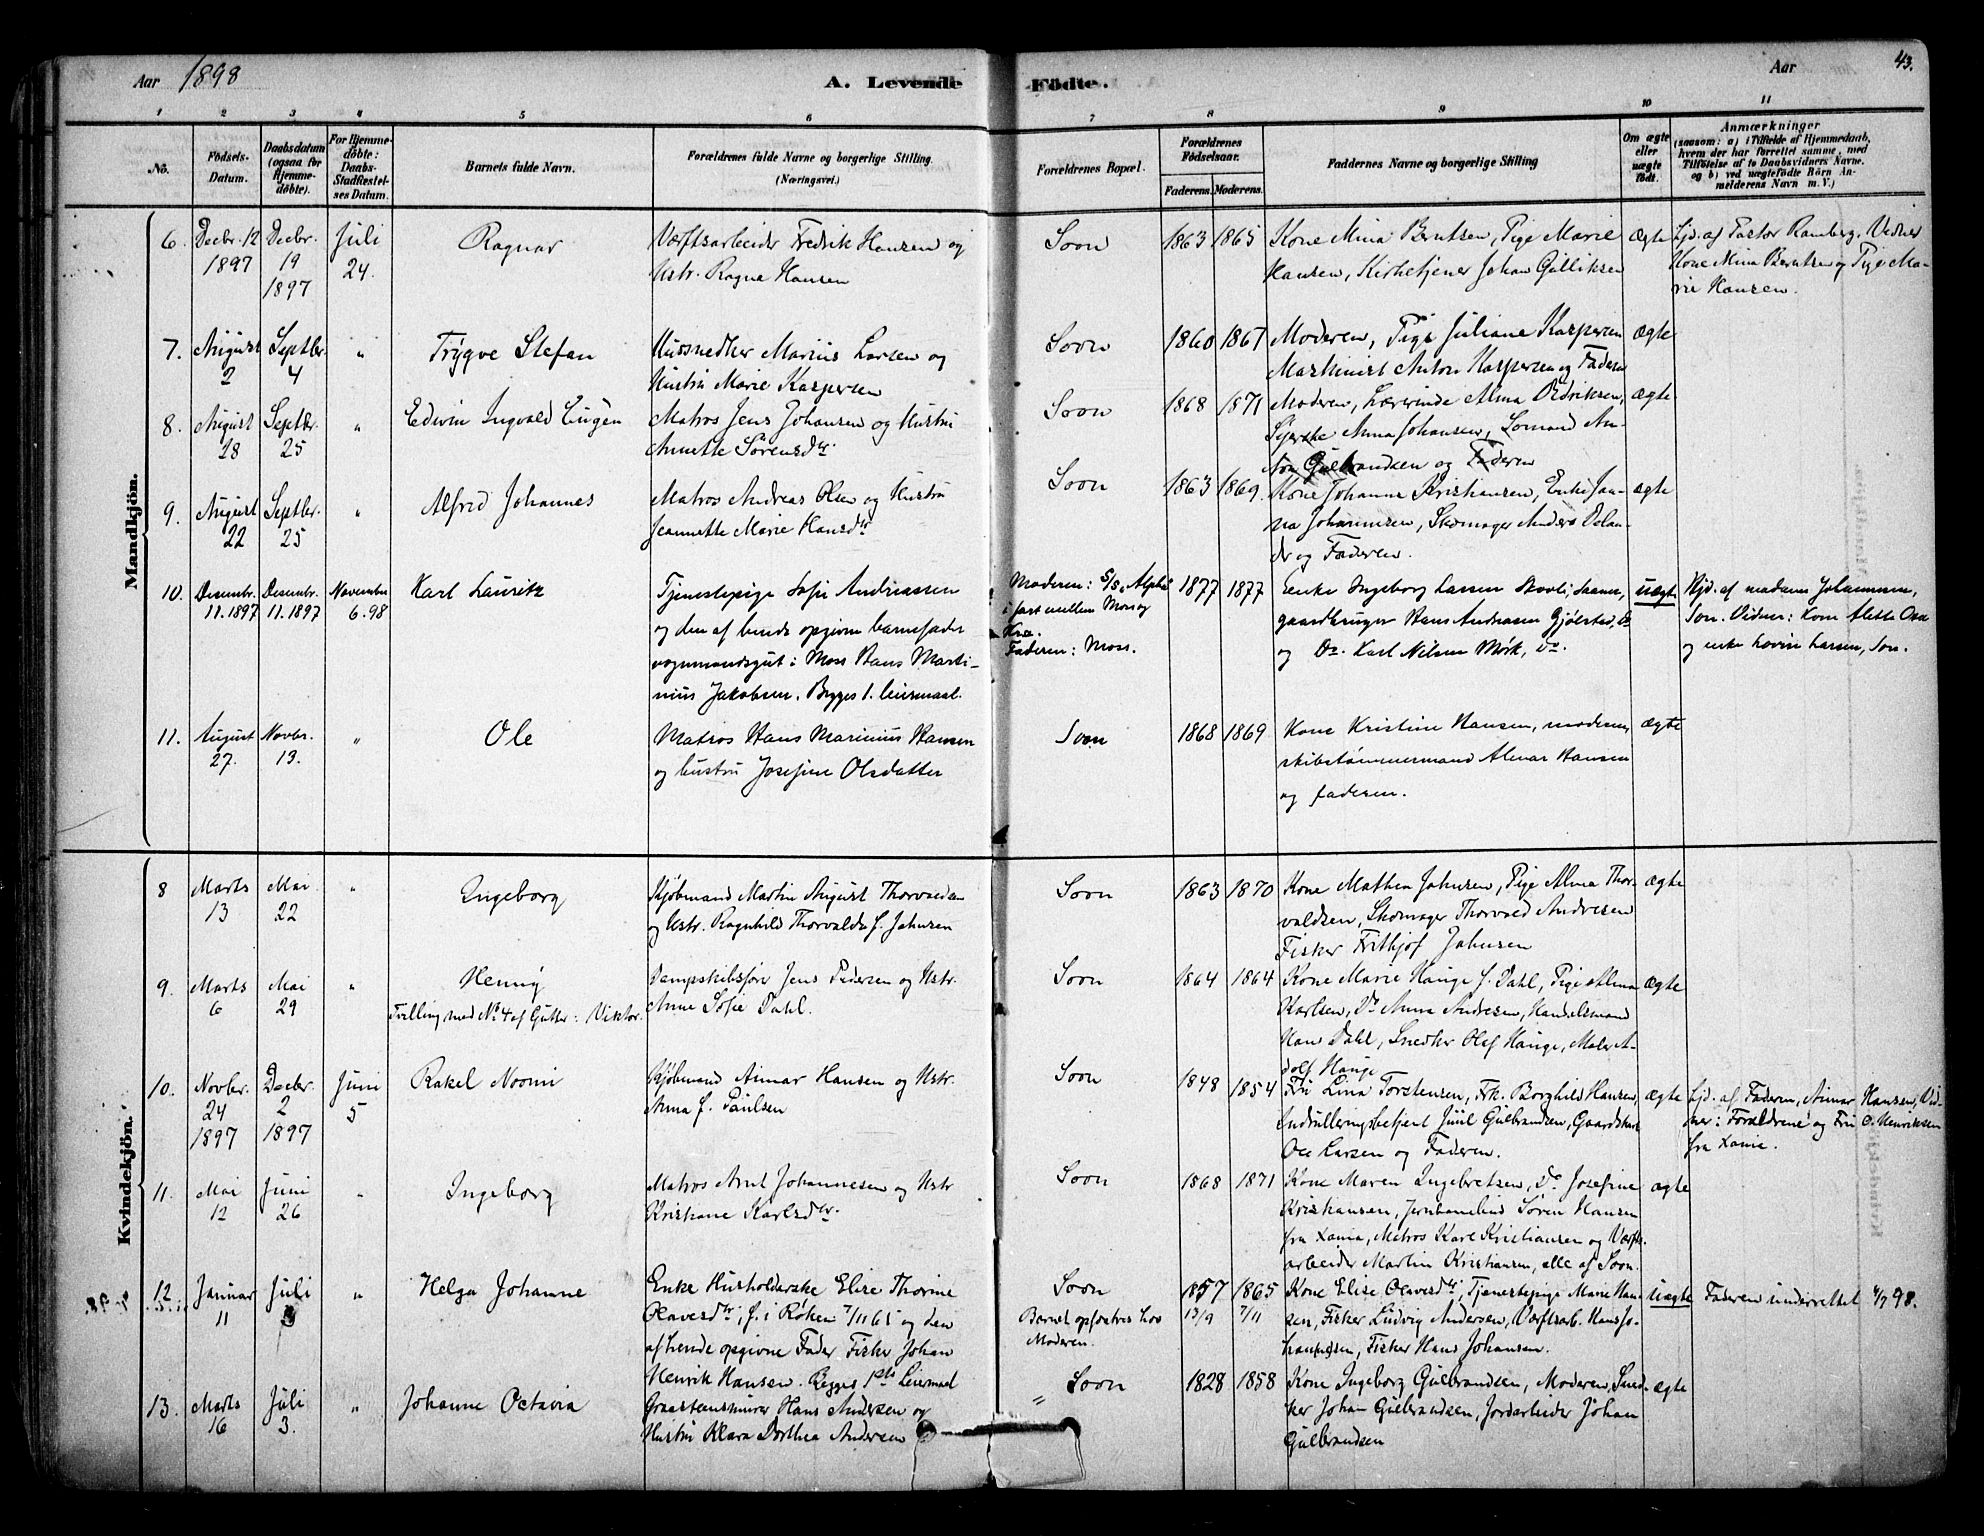 Aar 1898
A. Levende Födte.
Aar
43.
1 2 3 4 5 6 7 8 9 10 11
No.
Födsels-Datum.
Daabsdatum (ogsaa for Hjemmedöbte).
For Hjemmedöbte: Daabs-Stadfæstelses Datum.
Barnets fulde Navn.
Forældrenes fulde Navne og borgerlige Stilling. (Næringsvei.)
Forældrenes Bopæl.
Forældrenes Födselsaar.
Faderens. Moderens.
Faddernes Navne og borgerlige Stilling
Om ægte eller uægte födt.
Anmærkninger
(saasom: a) i Tilfælde af Hjemmedaab, hvem der har forrettet samme, med Tilföielse af to Daabsvidners Navne. og b) ved uægtefödte Börn Anmelderens Navn m. V.)
Mandkjön.
6. Decbr. 12 1897
Decbr. 19 1897
Juli 24.
Ragnar
Værftsarbeider Fredrik Hansen og
Hstr. Ragna Hansen
Soon
1863 1865
Kone Mina Berntsen, Pige Marie
Hansen, Kirketjener Johan Gulliksen
ægte
Hjd. af Pastor Ramberg. Vidner
Kone Mina Berntsen og Pige Ma-
rie Hansen.
7. August 2
Septbr. 4
"
Trygve Stefan
Hussnedker Marius Larsen og
Hustru Marie Kaspersen
Soon
1860 1867
Moderen, Pige Juliane Kaspersen
Maskinist Anton Kaspersen og Faderen
ægte
8. August 28
Septbr. 25
"
Edvin Ingvald Eugen
Matros Jens Johansen og Hustru
Annette Sörensdtr
Soon
1868 1871
Moderen, Lærerinde Alma Didriksen,
Syerske Anna Johansen, Sömand An-
ton Gulbrandsen og Faderen
ægte
9. August 22
Septbr. 25
"
Alfred Johannes
Matros Andreas Olsen og Hustru
Jeannette Marie Hansdtr
Soon
1863 1869.
Kone Johanne Kristiansen, Enke Jan-
na Johannesen, Skomager Anders
og Faderen.
ægte
10. Desembr. 11. 1897
Desembr. 11. 1897
November 6. 98
Karl Lauritz
Tjenestepige Sofie Andreassen
og den af hende opgivne barnefader
vognmandsgut i Moss Hans Marti-
nius Jakobsen. Begges 1. leiermaal.
Moderen: S/S. Alpha
i fart mellem Moss og
Kra.
Faderen: Moss.
1877 1877
Enke Ingeborg Larsen Skovli, Saaner,
gaardbruger Hans Andreasen Gjölstad, Do
og Do. Karl Nilsen Mörk, Do.
uægte
Hjd. af madame Johannesen,
Son. Vidner: Kone Alette
og enke Lovise Larsen, Son.
11. August 27.
Novbr. 13.
"
Ole
Matros Hans Marinius Hansen
og hustru Josefine Olsdatter
Soon
1868 1869
Kone Kristine Hansen, moderen,
skibstömmermand Almar Hansen
og faderen.
ægte
Kvindekjön.
8 Marts 13
Mai 22
"
Ingeborg
Kjöbmand Martin August Thorvaldsen
og Hstr. Ragnhild Thorvaldsen f. Johnsen
Soon
1863 1870
Kone Mathea Johnsen, Pige Alma Thor-
valdsen, Skomager Thorvald Andresen
Fisker Frithjof Johnsen
ægte
9. Marts 6
Mai 29
"
Henny
Tvilling med No 4 af Gutter: Viktor.
Dampskibsförer Jens Pedersen og Hstr.
Anne Sofie Dahl.
Soon
1864 1864
Kone Marie Hauge f. Dahl, Pige Alma
Karlsen, Do Anna Andresen, Handelsmand
Hans Dahl, Snedker Olaf Hauge, Maler A-
dolf Hauge
ægte
10. Novbr. 24 1897
Decbr. 2 1897
Juni 5
Rakel Noomi
Kjöbmand Aimar Hansen og Hstr.
Anna f. Paulsen
Soon
1848 1854
Fru Lina Torstensen, Frk. Borghild Hansen,
Indrulleringsbetjent Juul Gulbrandsen, Gaardskar
Ole Larsen og Faderen.
ægte
Hjd. af Faderen, Aimar Hansen, Vid-
ner: Forældrene og Fru C. Henriksen
fra Xania.
11. Mai 12
Juni 26
"
Ingeborg
Matros Arnt Johannesen og Hstr
Kristiane Karlsdtr.
Soon
1868 1871
Kone Maren Ingebretsen, Do Josefine
Kristiansen, Jernbanebud Sören Hansen
fra Xania, Matros Karl Kristiansen og Værfts-
arbeider Martin Kristiansen, alle af Soon.
ægte
12. Januar 11
Juli 3
"
Helga Johanne
Enke Husholderske Elise Thorine
Olavesdtr, f. i Röken 7/11 65 og den
af hende opgivne Fader Fisker Johan
Henrik Hansen. Begges 1ste Leiermaal
Soon
Barnet opfostres hos
Moderen.
1857 13/9
1865 7/11
Kone Elise Olavesdtr, Tjenestepige Marie Han-
sen, Fisker Ludvig Andersen, Værftsarb. Hans Jo-
hannesen, Fisker Hans Johansen.
uægte
Faderen underrettet 4/7 98.
13. Marts 16
Juli 3.
"
Johanne Octavia
Graastensmurer Hans Andersen og
Hustru Klara Dorthea Andersen
" Soon
1828 1858
Kone Ingeborg Gulbrandsen, Moderen, Sned-
ker Johan Gulbrandsen, Jordarbeider Johan
Gulbrandsen
ægte